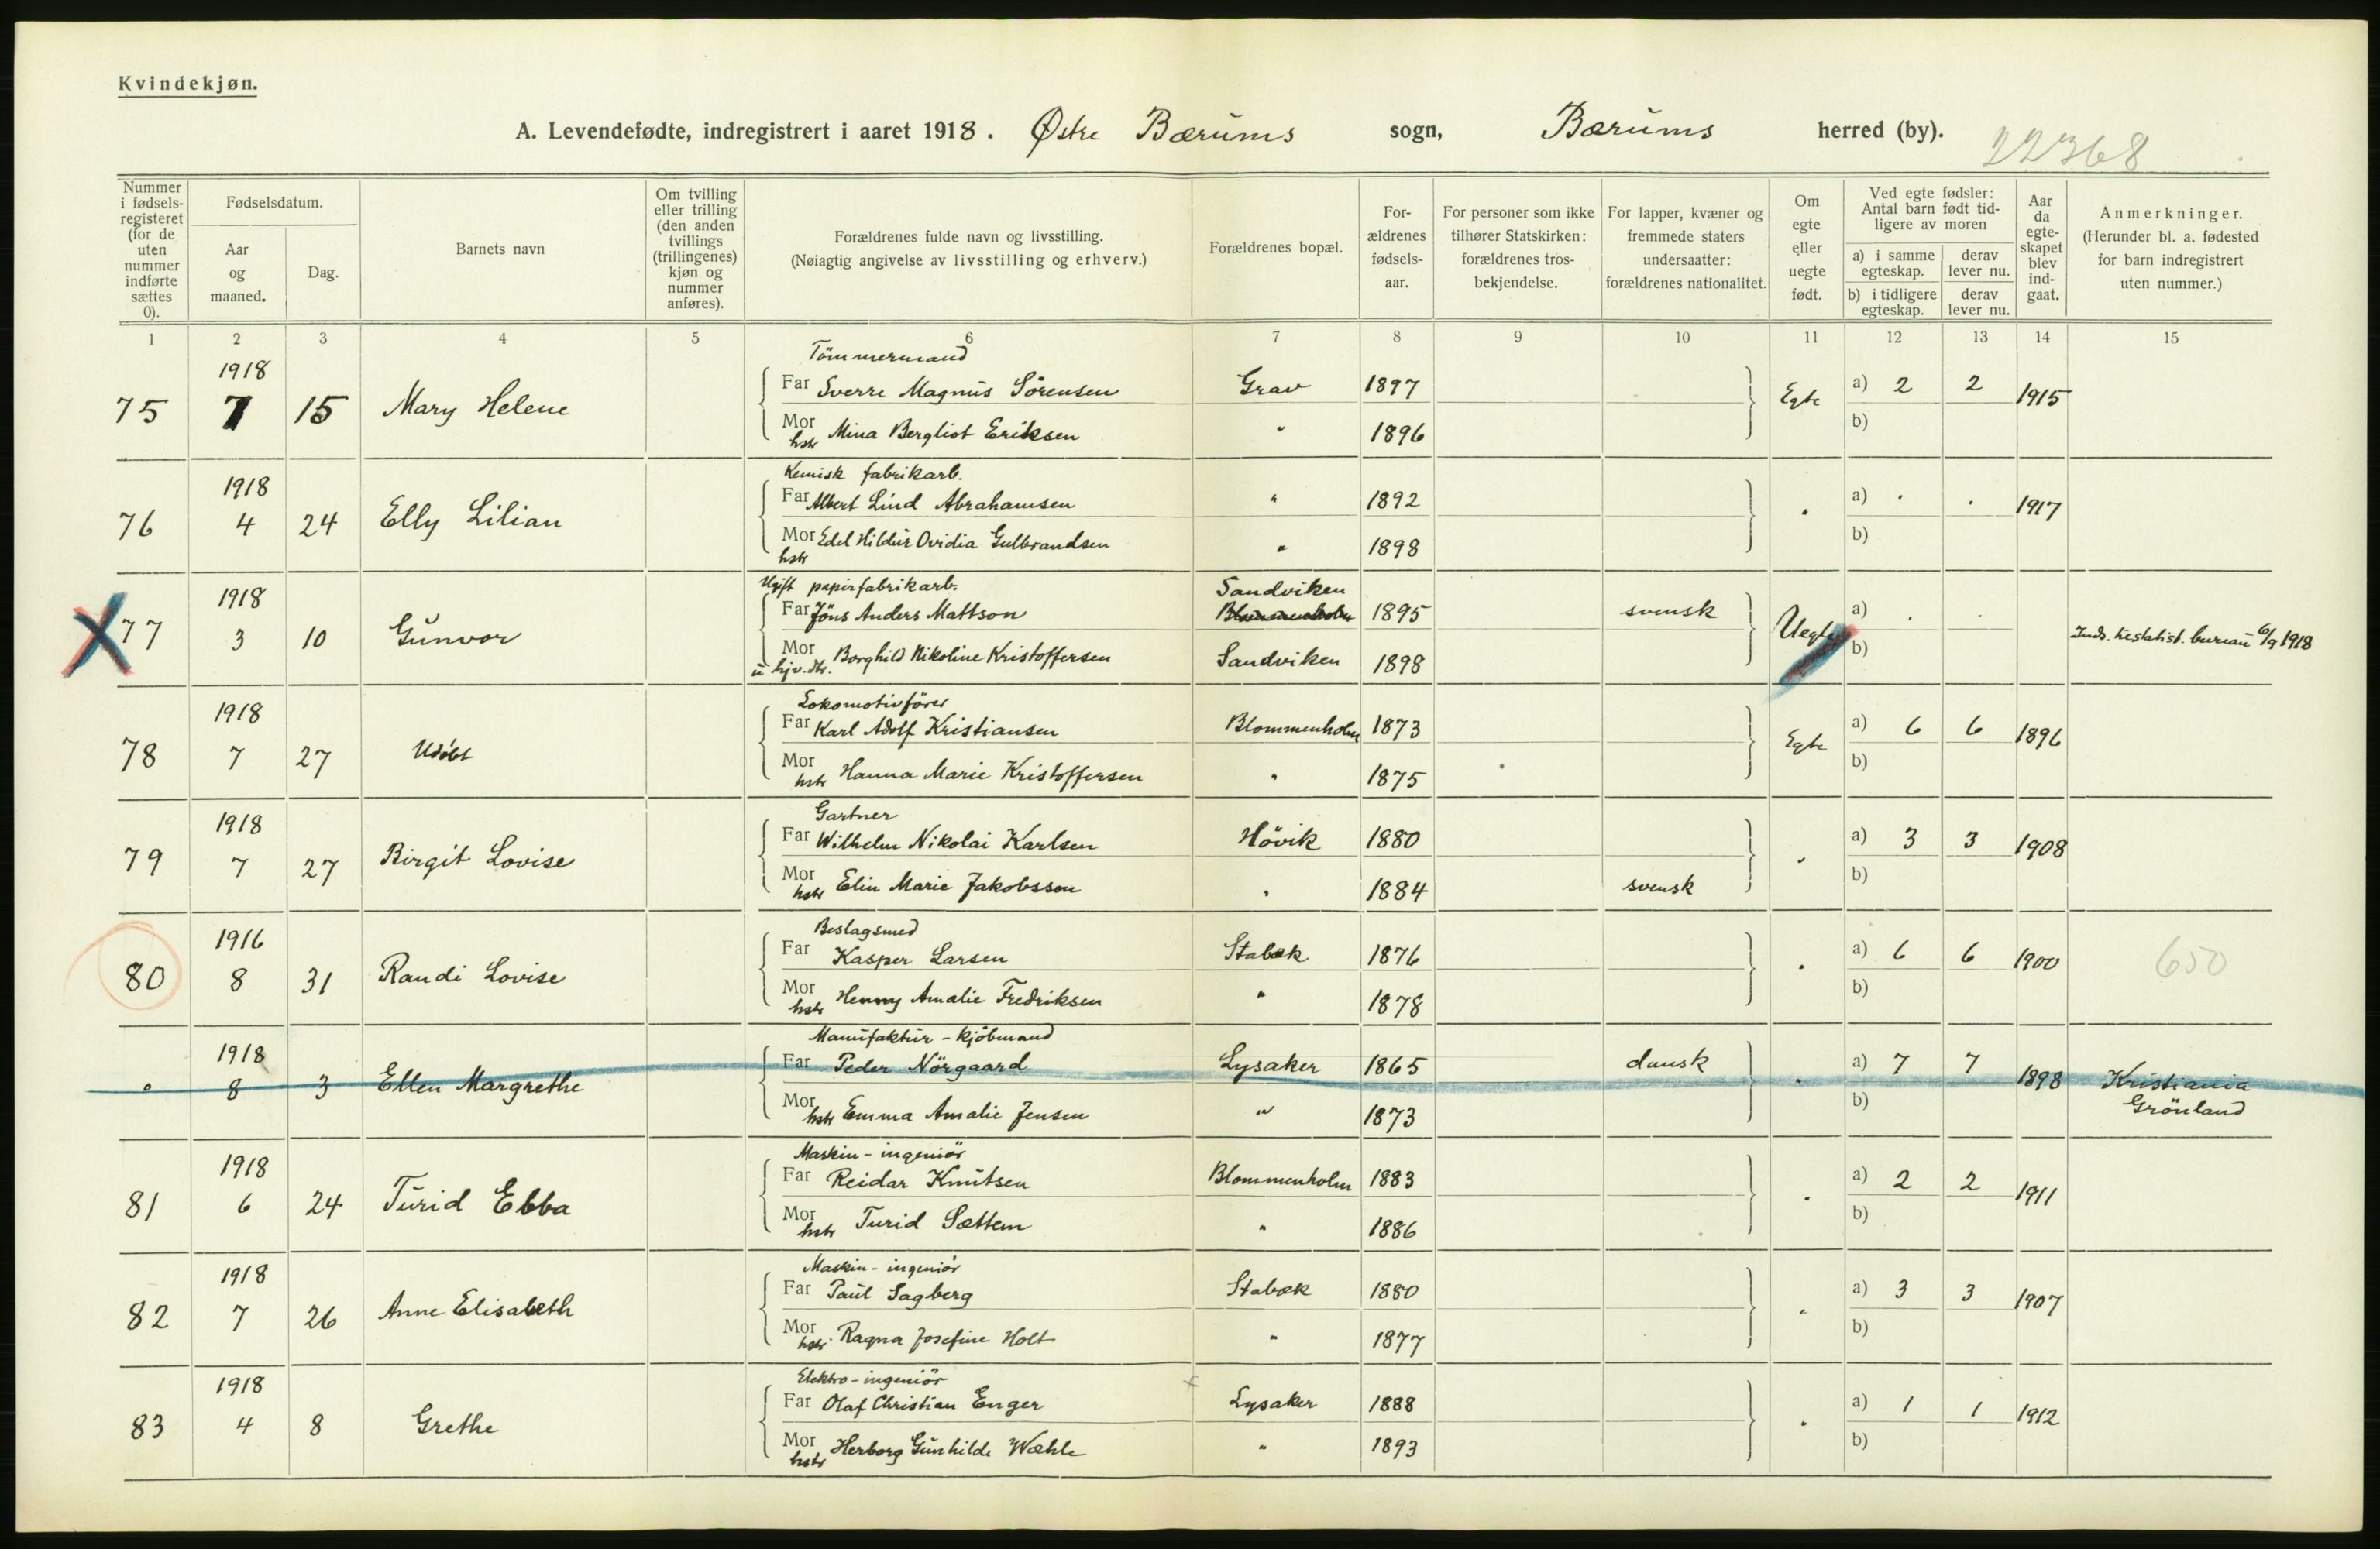 Kvindekjøn.
A. Levendefødte, indregistrert i aaret 1918. Østre Bærums sogn, Bærums herred (by). 22368
Nummer i fødsels-registeret (for de uten nummer indførte sættes 0).
Fødselsdatum.
Aar og maaned.
Dag.
Barnets navn
Om tvilling eller trilling (den anden tvillings (trillingenes) kjøn og nummer anføres).
Forældrenes fulde navn og livsstilling.
(Nøiagtig angivelse av livsstilling og erhverv.)
Forældrenes bopæl.
For-ældrenes fødsels-aar.
For personer som ikke tilhører Statskirken: forældrenes tros-bekjendelse.
For lapper, kvæner og fremmede staters undersaatter: forældrenes nationalitet.
Om egte eller uegte født.
Ved egte fødsler: Antal barn født tid-ligere av moren
a) i samme egteskap.
derav lever nu.
b) i tidligere egteskap.
derav lever nu.
Aar da egte-skapet blev ind-gaat.
Anmerkninger.
(Herunder bl. a. fødested for barn indregistrert uten nummer.)
1 2 3 4 5 6 7 8 9 10 11 12 13 14 15
1918 Tömmermand
75 7 15 Mary Helene Far Sverre Magnus Sörensen Grav 1897 Egte a) 2 2 1915
Mor hstr Mina Bergliot Eriksen " 1896 b)
1918 Kemisk fabrikarb.
76 4 24 Elly Lilian Far Albert Lind Abrahamsen " 1892 " a) . . 1917
Mor hstr Edel Hildur Ovidia Gulbrandsen " 1898 b)
1918 Ugift papirfabrikarb. Sandviken
77 3 10 Gunvor Far Jöns Anders Mattson Blommenholm 1895 svensk Uegte a) . .
Mor u hjv. dtr. Borghild Nikoline Kristoffersen Sandviken 1898 b) Inds. t. statist. bureau 6/9 1918
1918 Lokomotivförer
78 7 27 Udöbt Far Karl Adolf Kristiansen Blommenholm 1873 Egte a) 6 6 1896
Mor hstr Hanna Marie Kristoffersen " 1875 b)
1918 Gartner
79 7 27 Birgit Lovise Far Wilhelm Nikolai Karlsen Hövik 1880 " a) 3 3 1908
Mor hstr Elin Marie Jakobsson " 1884 svensk b)
1916 Beslagsmed
80 8 31 Randi Lovise Far Kasper Larsen Stabæk 1876 " a) 6 6 1900 650
Mor hstr Henny Amalie Fredriksen " 1878 b)
1918 Manufaktur - kjöbmand
0 8 3 Ellen Margrethe Far Peder Nörgaard Lysaker 1865 dansk " a) 7 7 1898 Kristiania
Mor hstr Emma Amalie Jensen " 1873 b) Grönland
1918 Maskin - ingeniör
81 6 24 Turid Ebba Far Reidar Knutsen Blommenholm 1883 " a) 2 2 1911
Mor hstr Turid Sættem " 1886 b)
1918 Maskin - ingeniör
82 7 26 Anne Elisabeth Far Paul Sagberg Stabæk 1880 " a) 3 3 1907
Mor hstr Ragna Josefine Holt " 1877 b)
1918 Elektro - ingeniör
83 4 8 Grethe Far Olaf Christian Enger Lysaker 1888 " a) 1 1 1912
Mor hstr Herborg Gunhilde Wæhle " 1893 b)